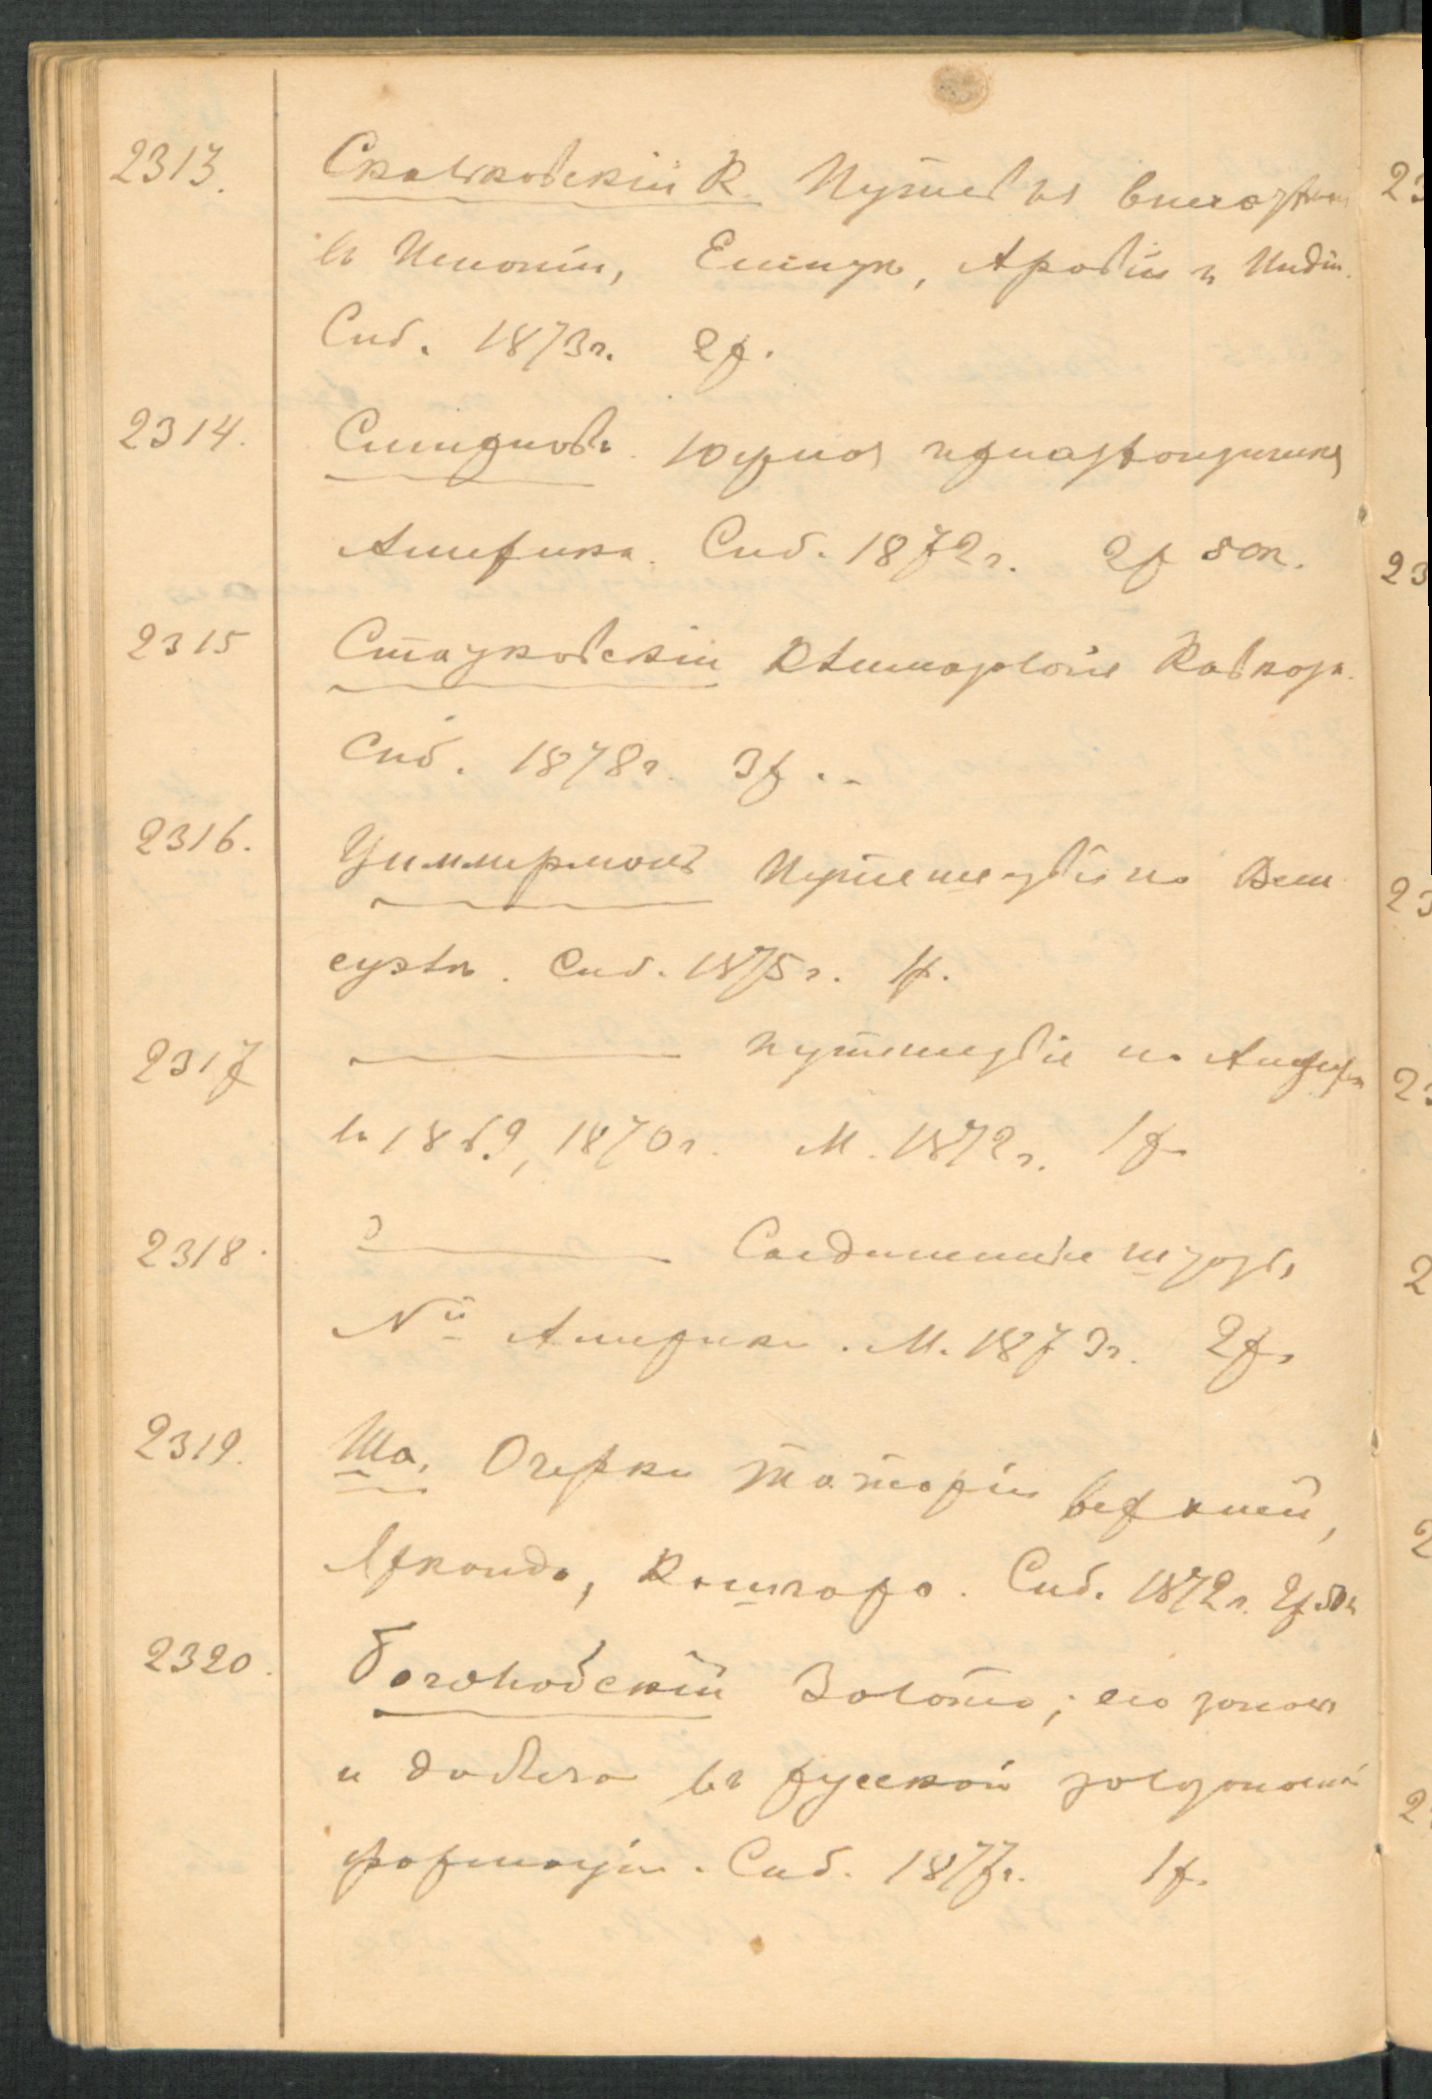 2313. Скальковскій К. Путев ыя впечатлѣн
въ Испаніи, Египтѣ, Аравіи и Индіи.
Спб. 1873г. 2р.
2314. Смирновъ. Южная
Америка. Спб. 1872г. 2р 50к.
2315 Стадковскій Климатологія Кавказа.
Спб. 1878г. 3р. -
2316. Циммерманъ Путешествіе по
сушѣ. Спб. 1875г. 1р.
2317 ——— путешествіе по Америкѣ
въ 1869, 1870г. М. 1872г. 1р.
2318. ——— Соединенные штаты
Америки. М. 1873г. 2р.
2319. Шо. Очерки Татаріи верхней,
Ярканда, Кашгара. Спб. 1872г. 2р. 50к
2320. Боголюбскій Золото; его запасы
и добыча въ русской золотоносной
формаціи. Спб. 1877г. 1р.